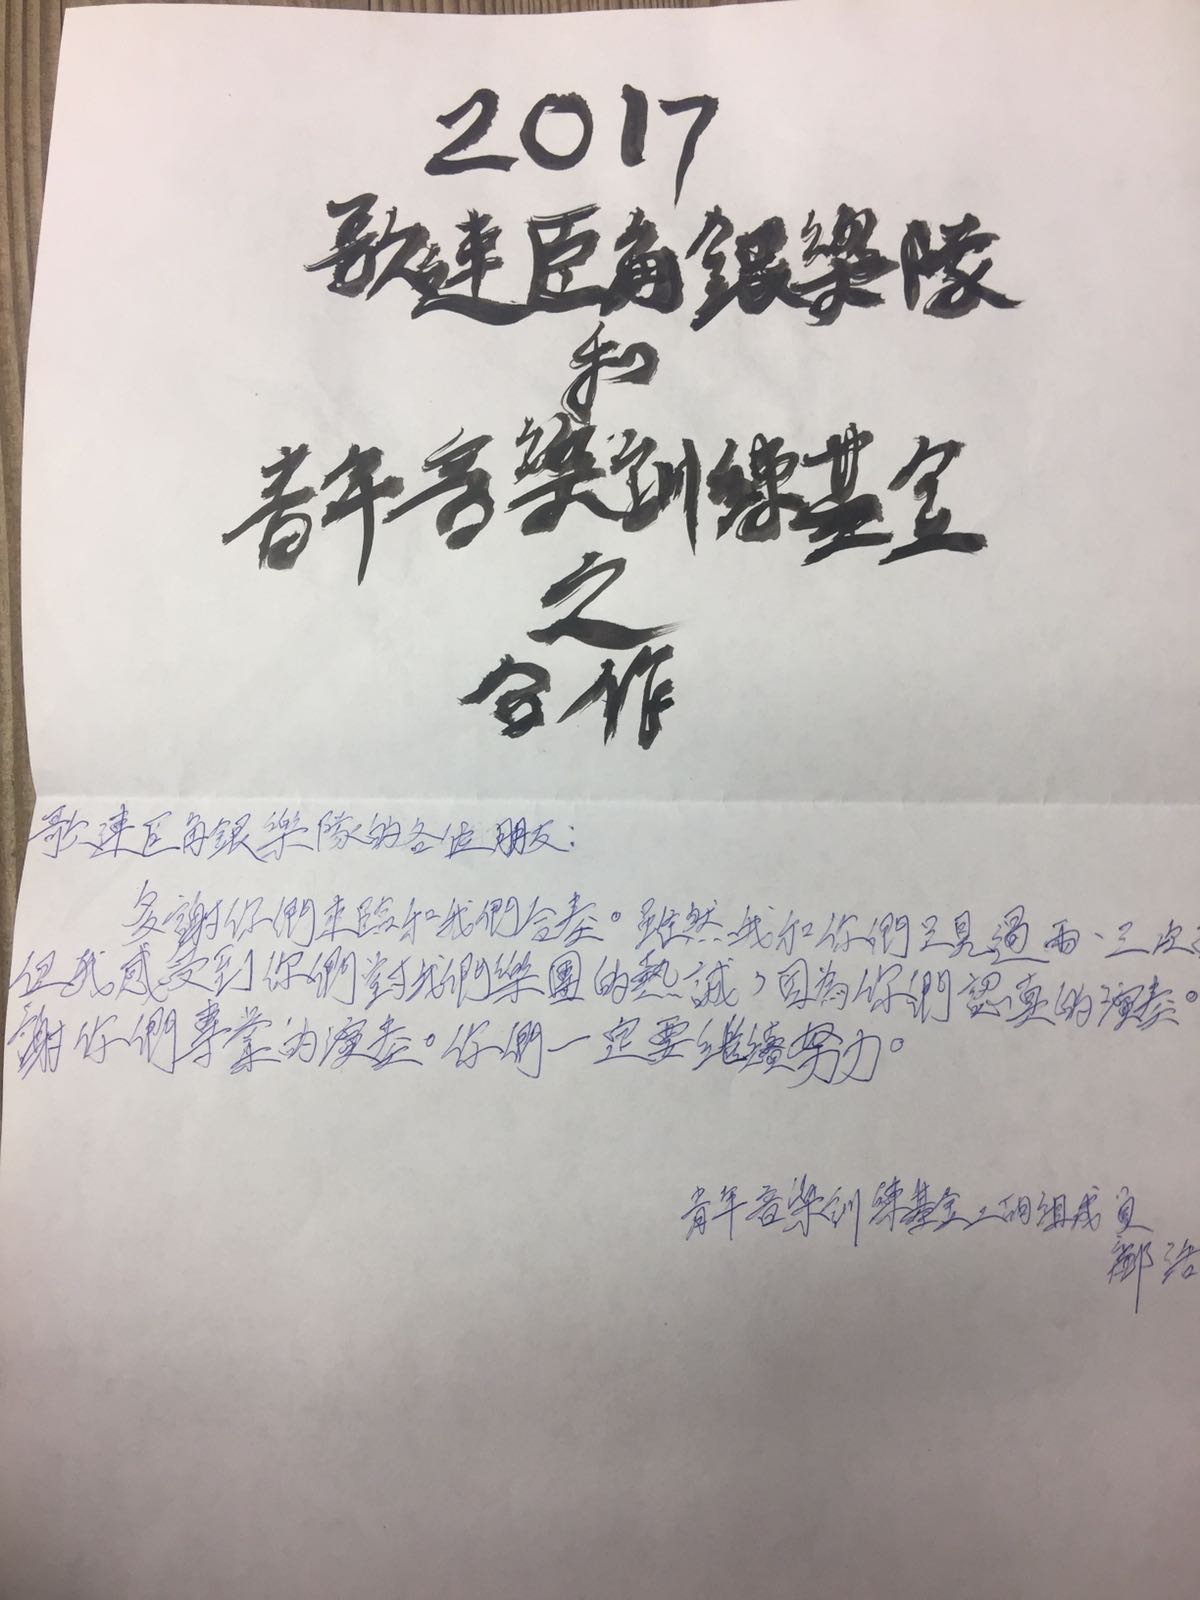 2017
歌連臣角銀樂隊
和
青年音樂訓練基金
之
合作
歌連臣角銀樂隊的各位朋友：
多謝你們來臨和我們合奏。雖然我和你們只見過兩、三次
但我感受到你們對我們樂團的熱誠，因為你們認真的演奏。
謝你們專業的演奏。你們一定要繼續努力。
青年音樂訓練基金上的組成員
鄺浩